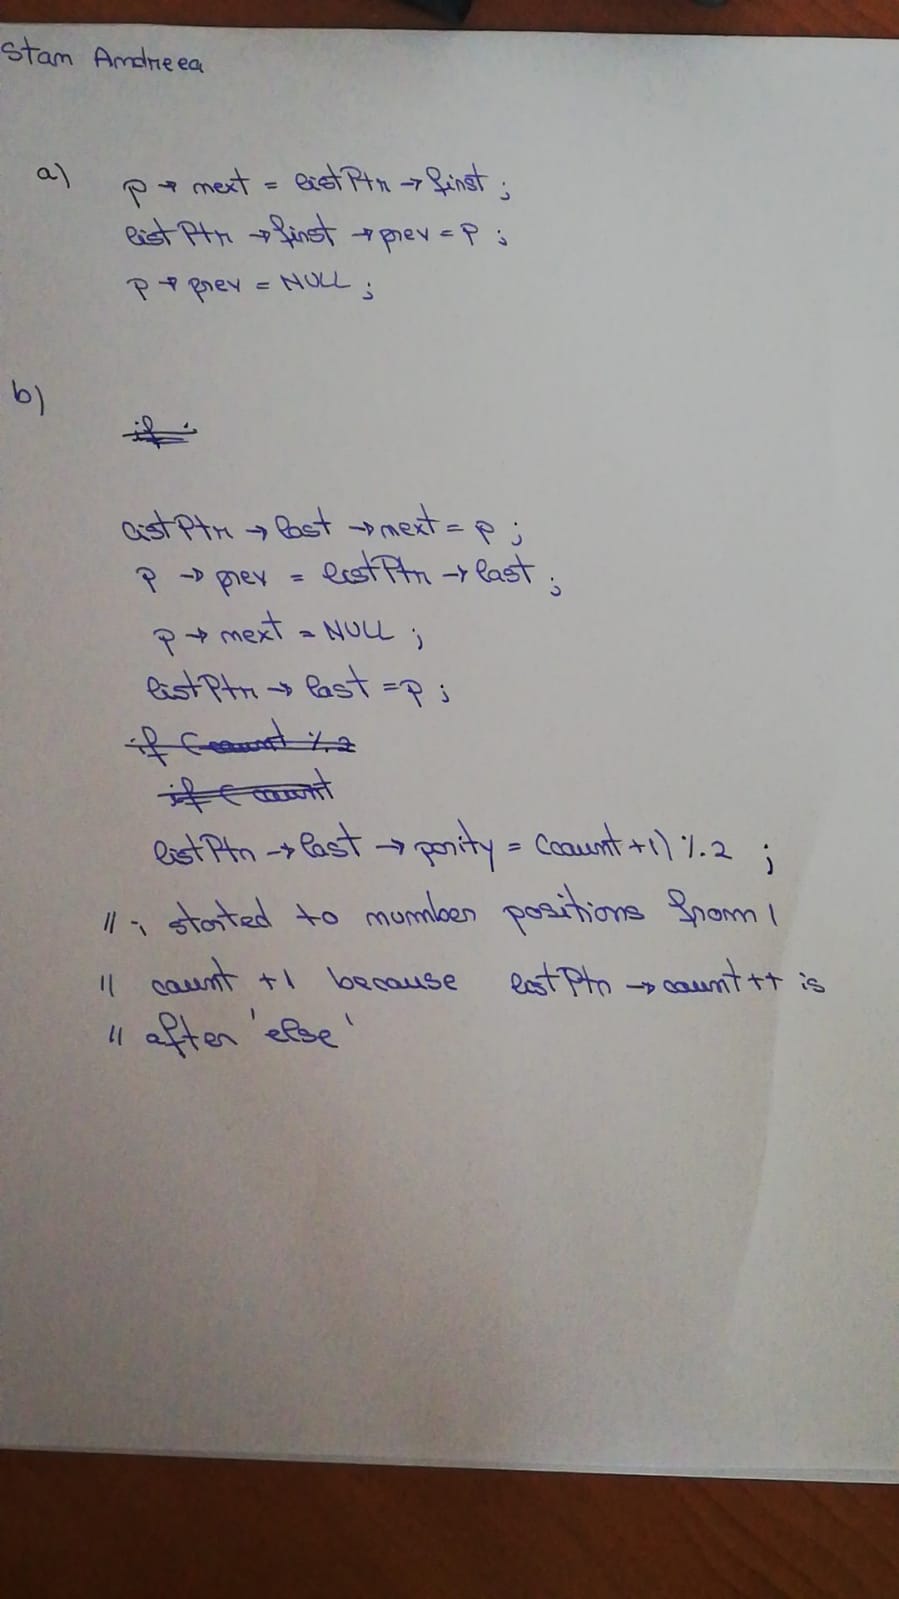 Stan Andreea
a) p → next = listPtr → first ;
listPtr → first → prev = p ;
p → prev = NULL ;
b)
if
listPtr → last → next = p ;
p → prev = listPtr → last ;
p → next = NULL ;
listPtr → last = p ;
if (count % 2
if (count
listPtr → last → parity = (count +1) % 2 ;
// i started to number positions from 1
// count +1 because listPtr → count ++ is
// after 'else'